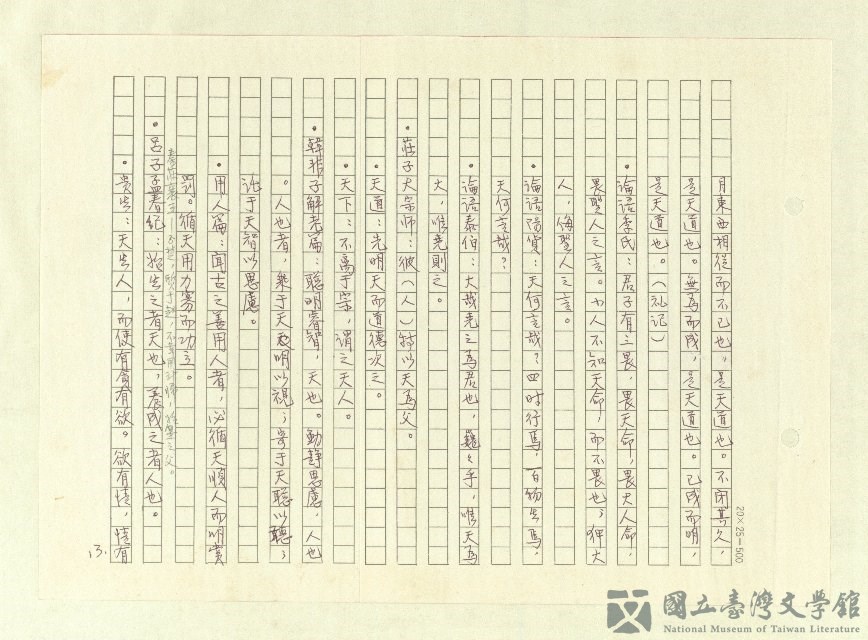 月東西相從而不已也，是天道也。不閉其久，
是天道也。無為而成，是天道也。已成而明，
是天道也。（礼记）
論语季氏：君子有三畏，畏天命，畏大人命，
畏聖人之言。小人不知天命，而不畏也；狎大
人，侮聖人之言。
論语陽貨：天何言哉？四时行焉，百物生焉，
天何言哉？
論语泰伯：大哉尧之為君也，巍々乎，唯天為
大，唯尧則之。
•莊子大宗师：彼（人）特以天為父。
•天道：先明天而道德次之。
•天下：不离于宗，谓之天人。
•韓非子解老篇：聰明睿智，天也。動静思慮，人也
。人也者，乘于天明以視；寄于天聪以聽；
讬于天智以思慮。
•用人篇：闻古之善用人者，必循天順人而明赏
罚。循天用力寡而功立。
•呂子孟春纪：始生之者天也，養成之者人也。
•贵生：天生人，而使有貪有欲。欲有情，情有
13.
20×25=500
國立臺灣文學館
National Museum of Taiwan Literature